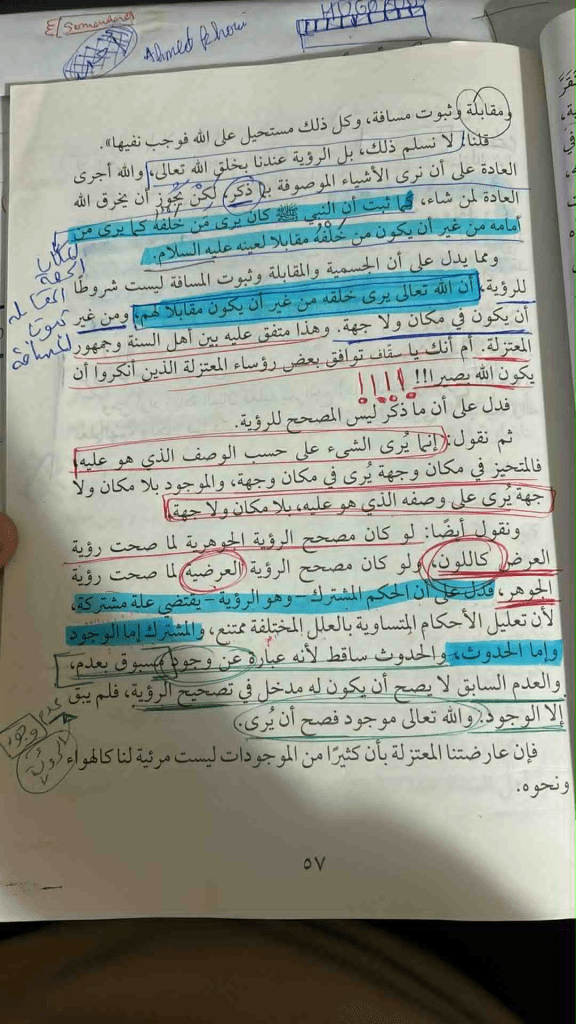 Ahmed Khowi
ومقابلة وثبوت مسافة، وكل ذلك مستحيل على الله فوجب نفيها».
قلنا: لا نسلم ذلك، بل الرؤية عندنا بخلق الله تعالى، والله أجرى
العادة على أن نرى الأشياء الموصوفة بما ذكر، لكنْ يجوز أن يخرق الله
العادة لمن شاء، كما ثبت أن النبي ﷺ كان يرى مَن خلفَه كما يرى من
أمامه من غير أن يكون من خلْفُه مقابلا لعينه عليه السلام.
ومما يدل على أن الجسمية والمقابلة وثبوت المسافة ليست شروطًا
للرؤية، أن الله تعالى يرى خلقه من غير أن يكون مقابلا لهم، ومن غير
أن يكون في مكان ولا جهة. وهذا متفق عليه بين أهل السنة وجمهور
المعتزلة. أم أنك يا سقاف توافق بعض رؤساء المعتزلة الذين أنكروا أن
يكون الله بصيرا!!! !!!!
فدل على أن ما ذكر ليس المصحح للرؤية.
ثم نقول: إنما يُرى الشيء على حسب الوصف الذي هو عليه،
فالمتحيز في مكان وجهة يُرى في مكان وجهة، والموجود بلا مكان ولا
جهة يُرى على وصفه الذي هو عليه، بلا مكان ولا جهة.
ونقول أيضًا: لو كان مصحح الرؤية الجوهرية لما صحت رؤية
العرض كاللون، ولو كان مصحح الرؤية العرضيه لما صحت رؤية
الجوهر، فدل على أن الحكم المشترك -وهو الرؤية- يقتضي علة مشتركة،
لأن تعليل الأحكام المتساوية بالعلل المختلفة ممتنع، والمشترك إما الوجود
وإما الحدوث، والحدوث ساقط لأنه عبارة عن وجود مسبوق بعدم،
والعدم السابق لا يصح أن يكون له مدخل في تصحيح الرؤية، فلم يبق
إلا الوجود. والله تعالى موجود فصح أن يُرى.
فإن عارضتنا المعتزلة بأن كثيرًا من الموجودات ليست مرئية لنا كالهواء
ونحوه.
المكان
الجهة
المقابلة
ثبوت
المسافة
عدم
وجود
٥٧